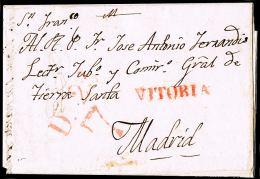 Sn. Franco
Al R. P. Fr. Jose Antonio Fernandiz
Lectr. Jubo. y Comiro. Gral de
Tierra Santa VITORIA
Madrid